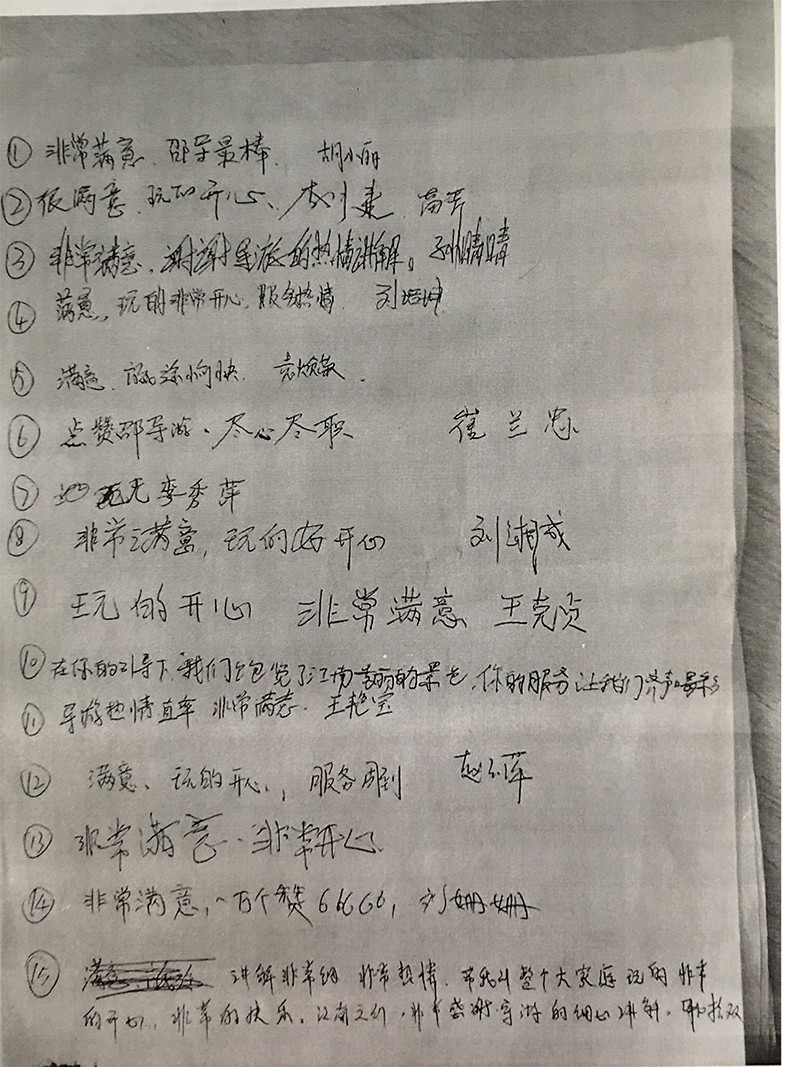 ① 非常满意、邵导最棒. 胡小丽
② 很满意、玩的开心、 高芳
③ 非常满意、谢谢导游的热情讲解。孙晴晴
④ 满意, 玩的非常开心, 服务热情. 刘培坤
⑤ 满意, 旅途愉快. 袁焕荣.
⑥ 点赞邵导游、尽心尽职 崔兰忠
⑦ 李秀萍
⑧ 非常满意, 玩的好开心 刘湘成
⑨ 玩的开心 非常满意 王克贞
⑩ 在你的引导下, 我们饱览了江南的景色, 你的服务让我们
⑪ 导游热情直率 非常满意. 王艳宝
⑫ 满意、玩的开心, 服务周到
⑬ 非常满意. 非常开心.
⑭ 非常满意, 一万个赞 66666, 刘姗姗
⑮ 讲解非常细 非常热情. 带我们整个大家庭玩的非常
的开心, 非常的快乐. 江南之行, 非常感谢导游的细心讲解.